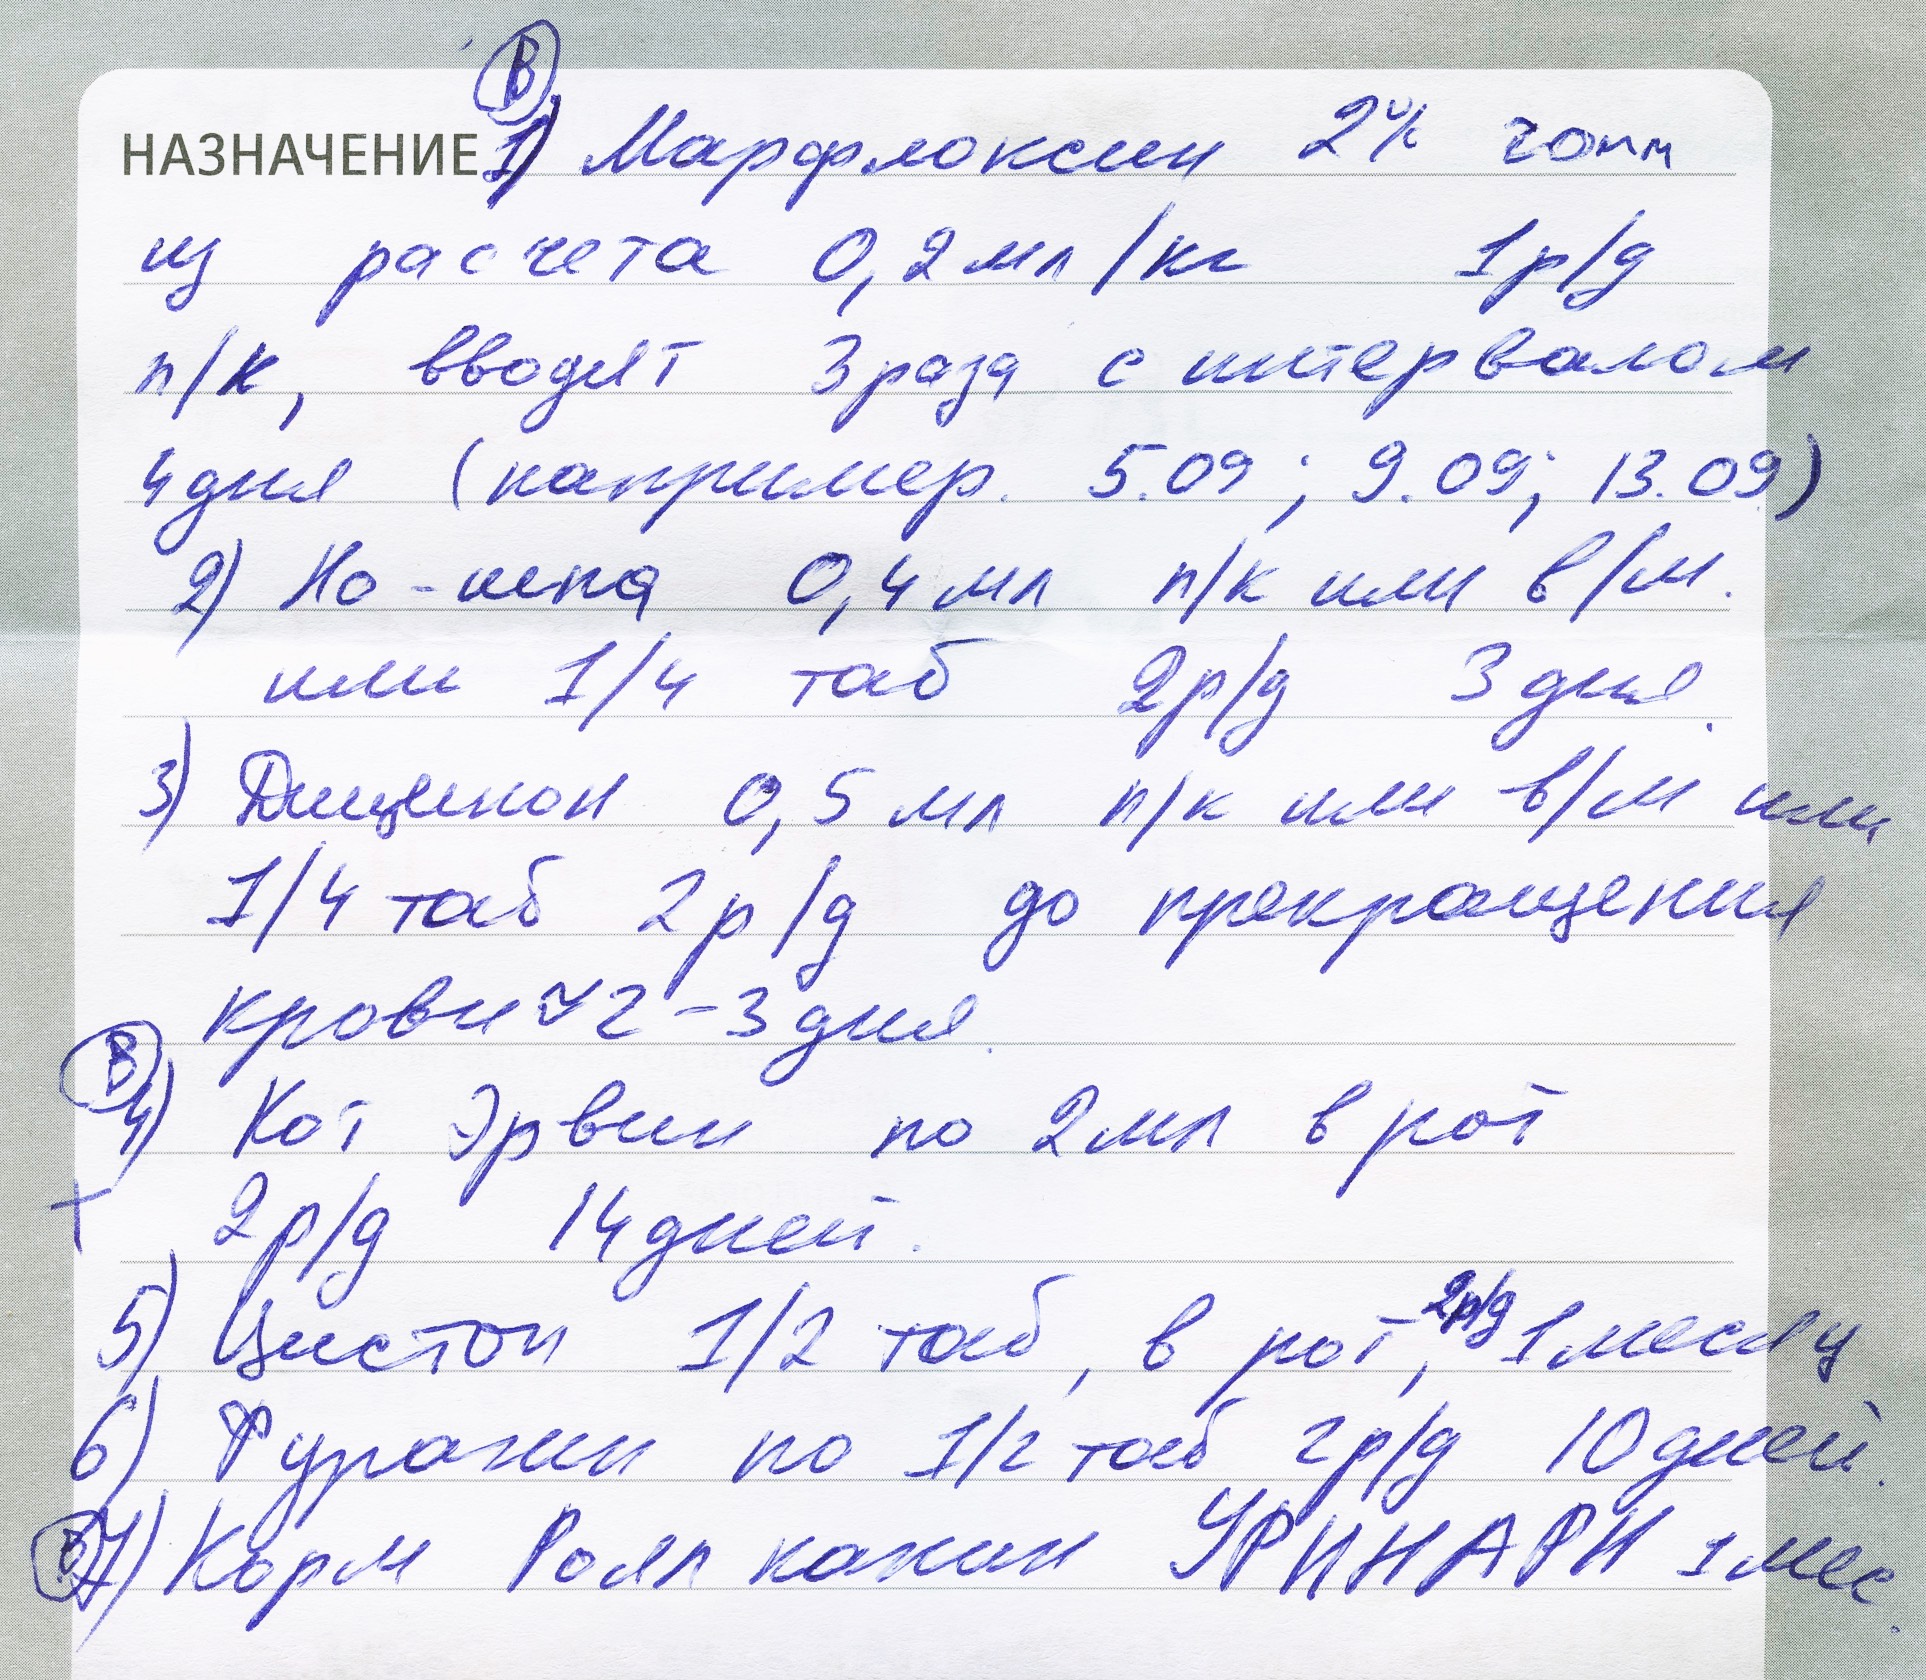 В
НАЗНАЧЕНИЕ 1) Марфлоксин 2%
из расчета 0,2 мл/кг 1р/д
п/к, вводят 3 раза с интервалом
4 дня (например. 5.09; 9.09; 13.09)
2) Но-шпа 0,4 мл п/к или в/м.
или 1/4 таб 2р/д 3 дня.
3) Дицинон 0,5 мл п/к или в/м или
1/4 таб 2р/д до прекращения
крови ~ 2-3 дня.
В
4) Кот Эрвин по 2 мл в рот
+ 2р/д 14 дней.
5) Цистон 1/2 таб, в рот, 2р/д 1 месяц
6) Фурагин по 1/2 таб 2р/д 10 дней.
В 7) Корм Роял канин УРИНАРИ 1 мес.